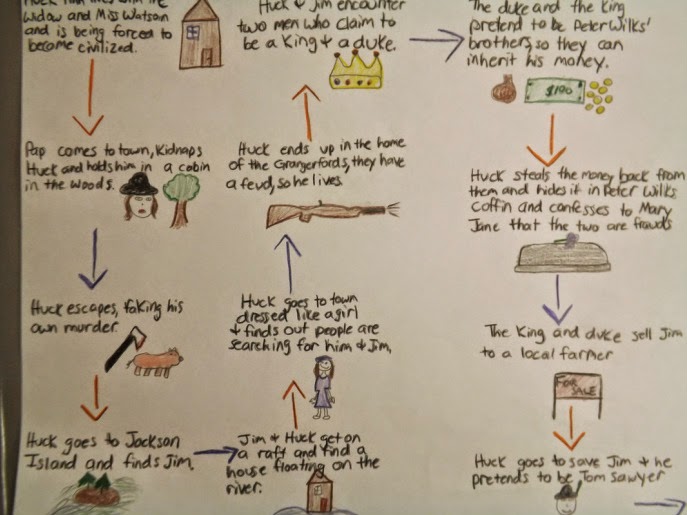 Huck Finn lives with the
Widow and Miss Watson
and is being forced to
become civilized.
Pap comes to town, Kidnaps
Huck and holds him in a cabin
in the woods.
Huck escapes, faking his
own murder.
Huck goes to Jackson
Island and finds Jim.
Jim & Huck get on
a raft and find a
house floating on the
river.
Huck goes to town
dressed like a girl
& finds out people are
searching for him & Jim.
Huck ends up in the home
of the Grangerfords, they have
a feud, so he lives.
Huck & Jim encounter
two men who claim to
be a King & a duke.
The duke and the King
pretend to be Peter Wilks'
brothers, so they can
inherit his money.
$100
Huck steals the money back from
them and hides it in Peter Wilks
Coffin and confesses to Mary
Jane that the two are frauds
The King and duke sell Jim
to a local farmer
FOR
SALE
Huck goes to save Jim & he
pretends to be Tom Sawyer